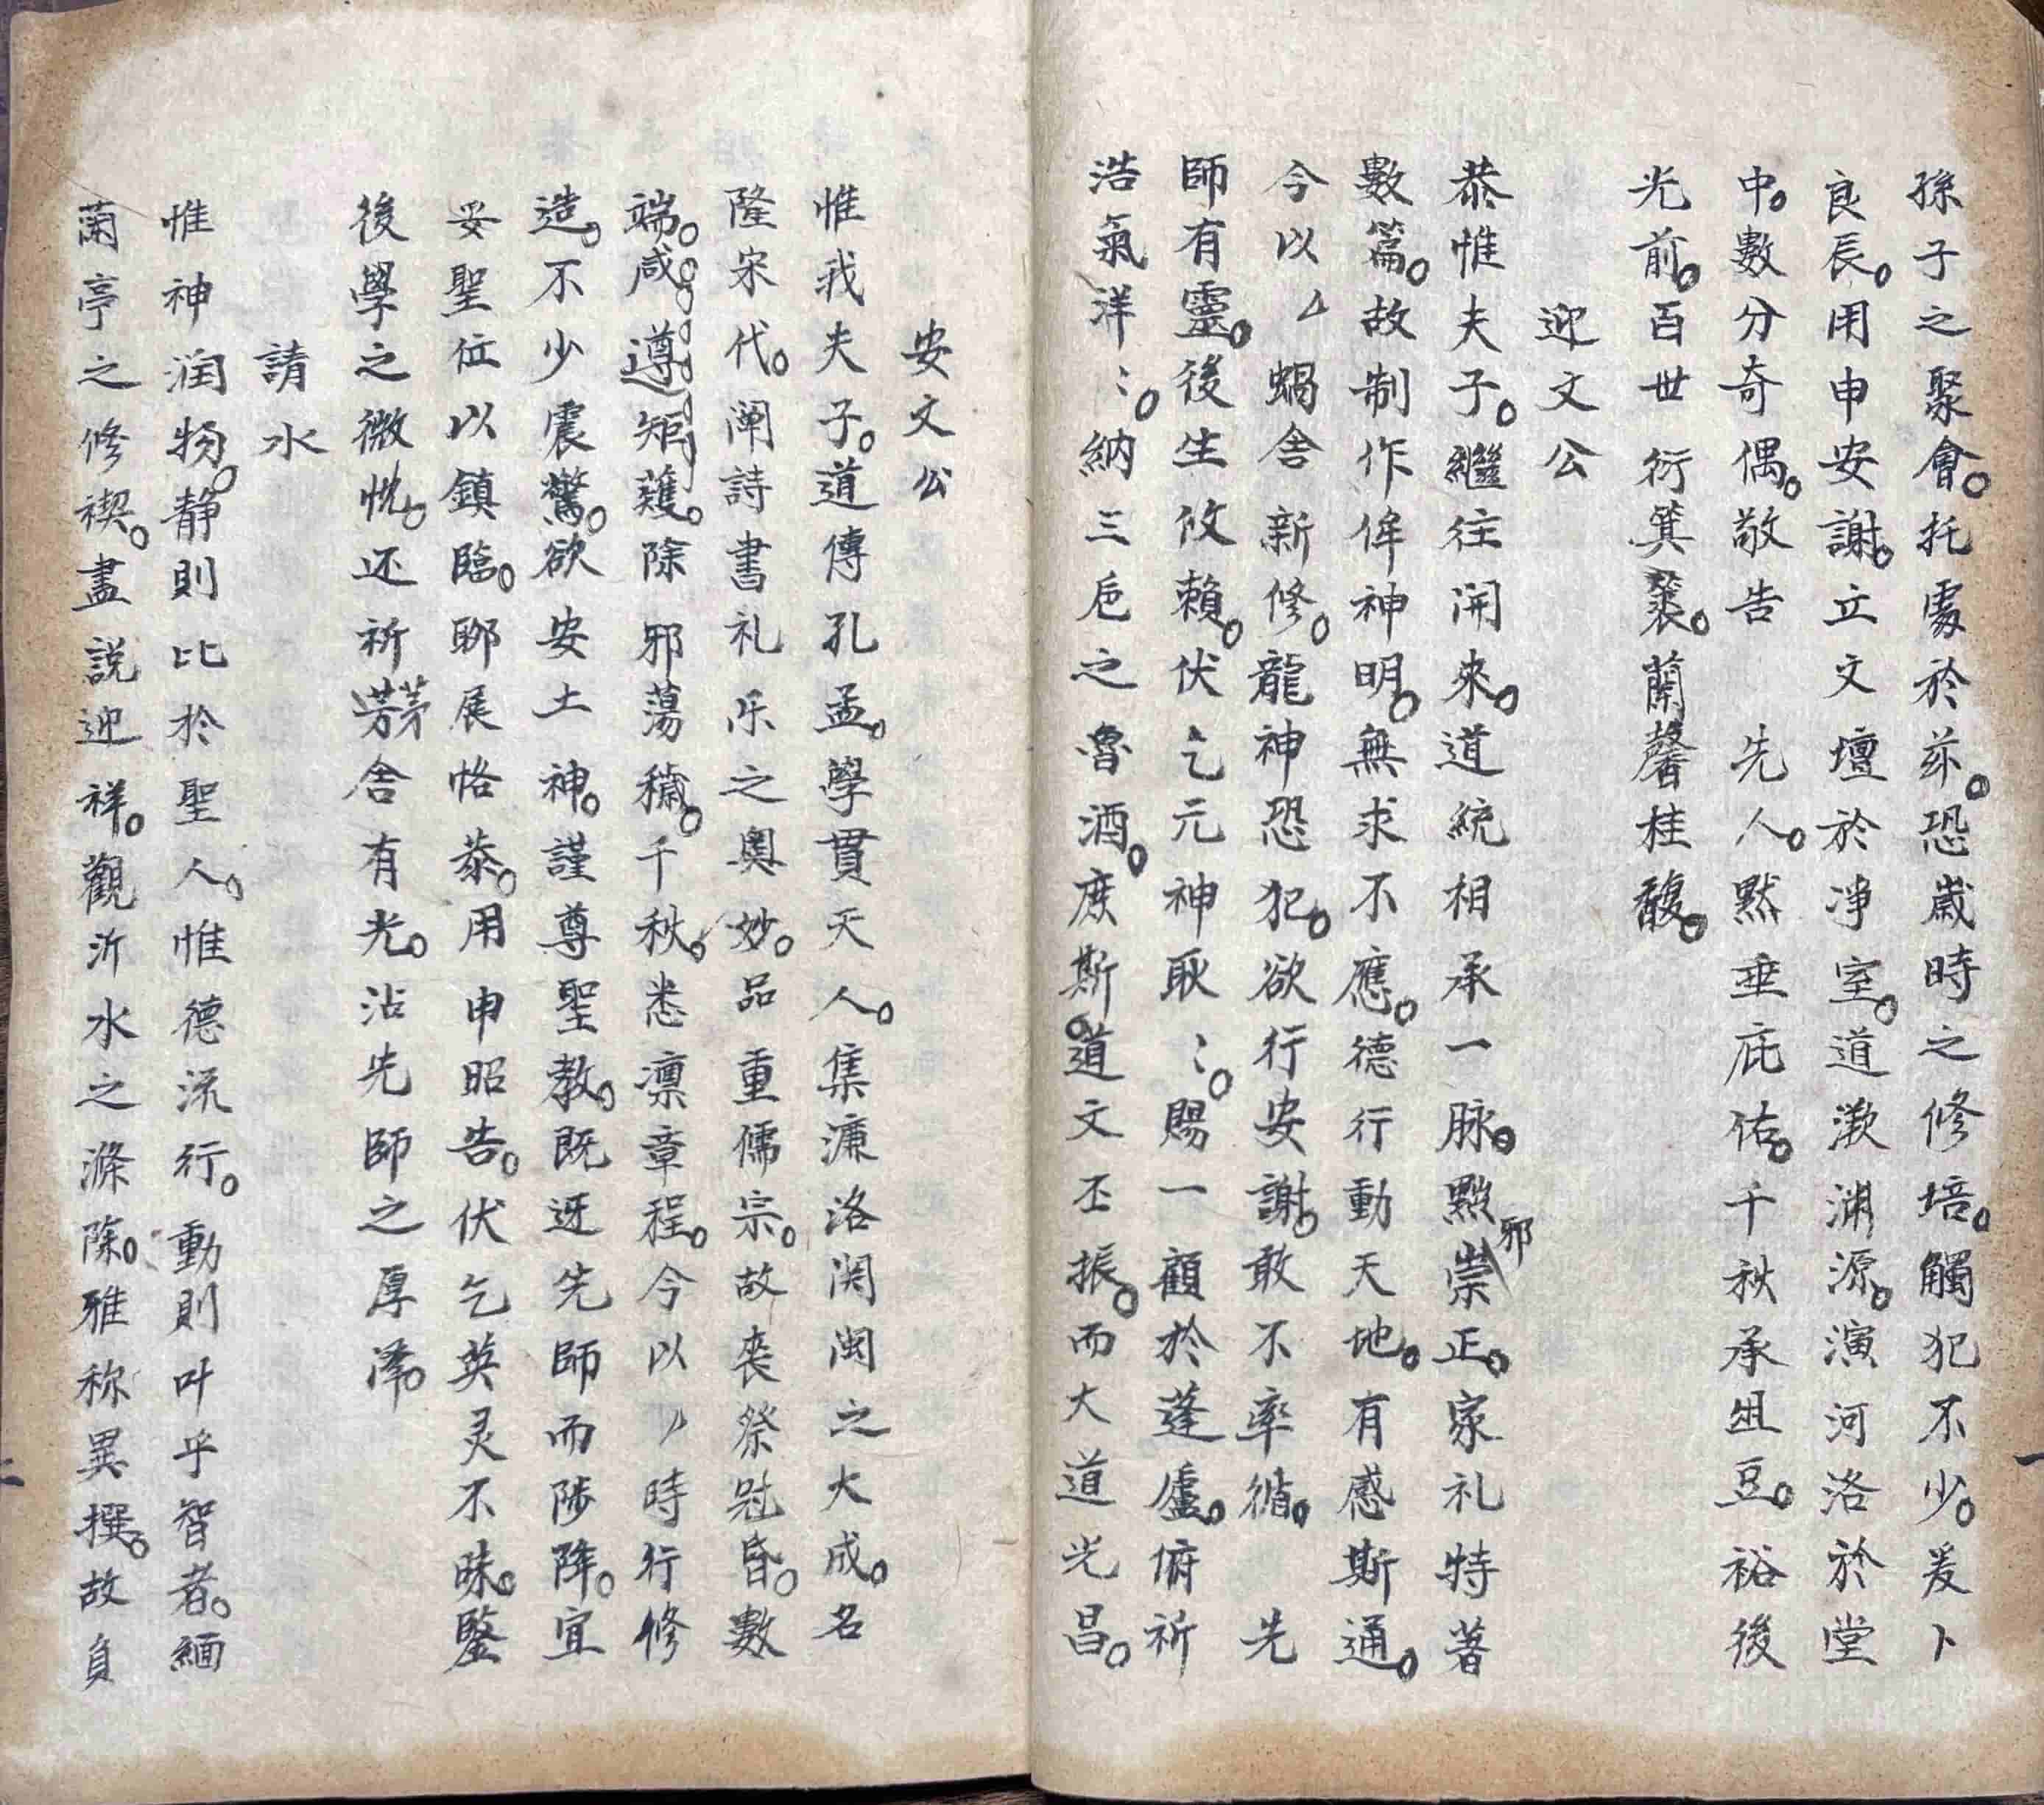 孫子之聚會。托處於茲。恐歲時之修培。觸犯不少。爰卜
良辰。用申安謝。立文壇於凈室。道漱渊源。演河洛於堂
中。數分奇偶。敬告　先人。默垂庇佑。千秋承俎豆。裕後
光前。百世衍箕裘。蘭馨桂馥。
迎文公
恭惟夫子。繼往開來。道統相承一脉。黜邪崇正。家礼特著
數篇。故制作侔神明。無求不應。德行動天地。有感斯通。
今以厶蝸舍新修。龍神恐犯。欲行安謝。敢不率循。　先
師有靈。後生攸賴。伏乞元神耿〻。賜一顧於蓬廬。俯祈
浩氣洋〻。納三卮之魯酒。庶斯道文丕振。而大道光昌。
安文公
惟我夫子。道傳孔孟。學貫天人。集濂洛関閩之大成。名
隆宋代。闡詩書礼乐之奧妙。品重儒宗。故丧祭冠昏。數
端。咸遵矩矱。除邪蕩穢。千秋悉凛章程。今以厶時行修
造。不少震驚。欲安土神。謹尊聖教。既迓先師而陟降。宜
妥聖位以鎮臨。聊展恪恭。用申昭告。伏乞英灵不昧。鑒
後學之微忱。还祈茅舍有光。沾先師之厚澤。
請水
惟神润物。静則比於聖人。惟德流行。動則叶乎智者。緬
蘭亭之修禊。盡説迎祥。觀沂水之滌除。雅称異撰。故負